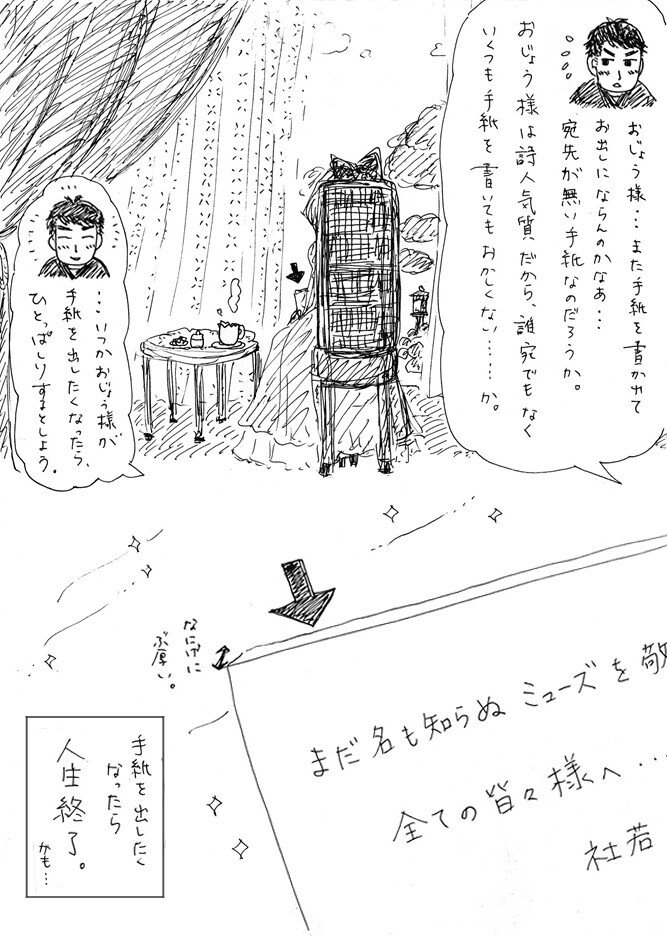 おじょう様…また手紙を書かれて
お出しにならんのかなあ…
宛先が無い手紙なのだろうか。
おじょう様は詩人気質だから、誰宛でもなく
いくつも手紙を書いてもおかしくない……か。
…いつかおじょう様が
手紙を出したくなったら、
ひとっぱしりするとしよう。
なにげに
ぶ厚い。
まだ名も知らぬミューズを敬
全ての皆々様へ…
社若
手紙を出したく
なったら
人生終了。
かも…